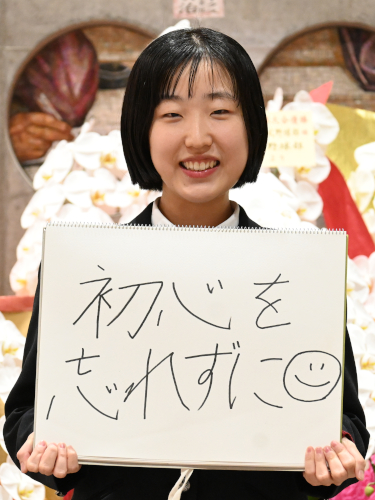 初心を
忘れずに☺